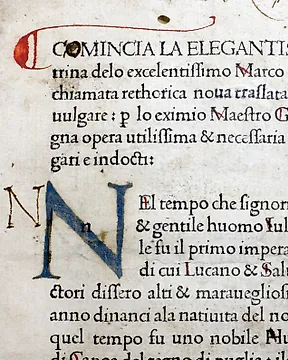 COMINCIA LA ELEGANTIS
trina delo excelentissimo Marco
chiamata rethorica noua traslata
uulgare: p lo eximio Maestro G
gna opera utilissima & necessaria
gari e indocti:
N N n
El tempo che signor
& gentile huomo Iul
le fu il primo impera
di cui Lucano & Sal
ctori dissero alti & marauegliosi
anno dinanci ala natiuita del no
quel tempo fu uno nobile